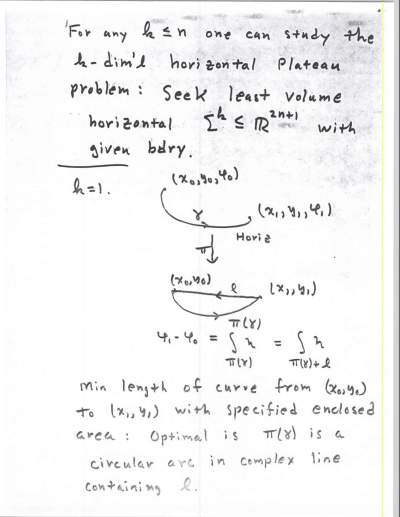 For any k ≤ n one can study the
k-dim'l horizontal Plateau
problem: Seek least volume
horizontal Σ^k ≤ ℝ^{2n+1} with
given bdry.
k=1.
(x₀,y₀,φ₀)
γ
(x₁,y₁,φ₁)
Horiz
π
(x₀,y₀)
l
(x₁,y₁)
π(γ)
φ₁-φ₀ = ∫_{π(γ)} η = ∫_{π(γ)+l} η
Min length of curve from (x₀,y₀)
to (x₁,y₁) with specified enclosed
area: Optimal is π(γ) is a
circular arc in complex line
containing l.